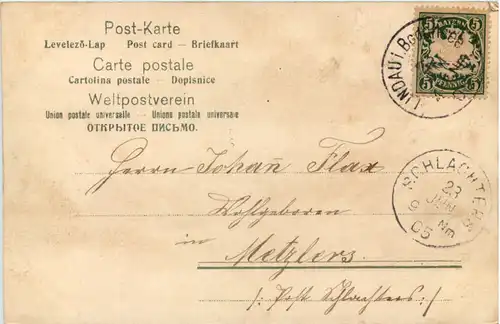 Post-Karte
Levelező-Lap Post card – Briefkaart
Carte postale
Cartolina postale – Dopisnice
Weltpostverein
Union postale universelle – Unione postale universale
ОТКРЫТОЕ ПИСЬМО.
BAYERN
5 5
5 5
PFENNIG
LINDAU i. B.
SCHLACHTERS
23
JUN
Nm
05
Herrn Johann Flax
Wohlgeboren
in
Metzlers
/: Post Schlachters :/